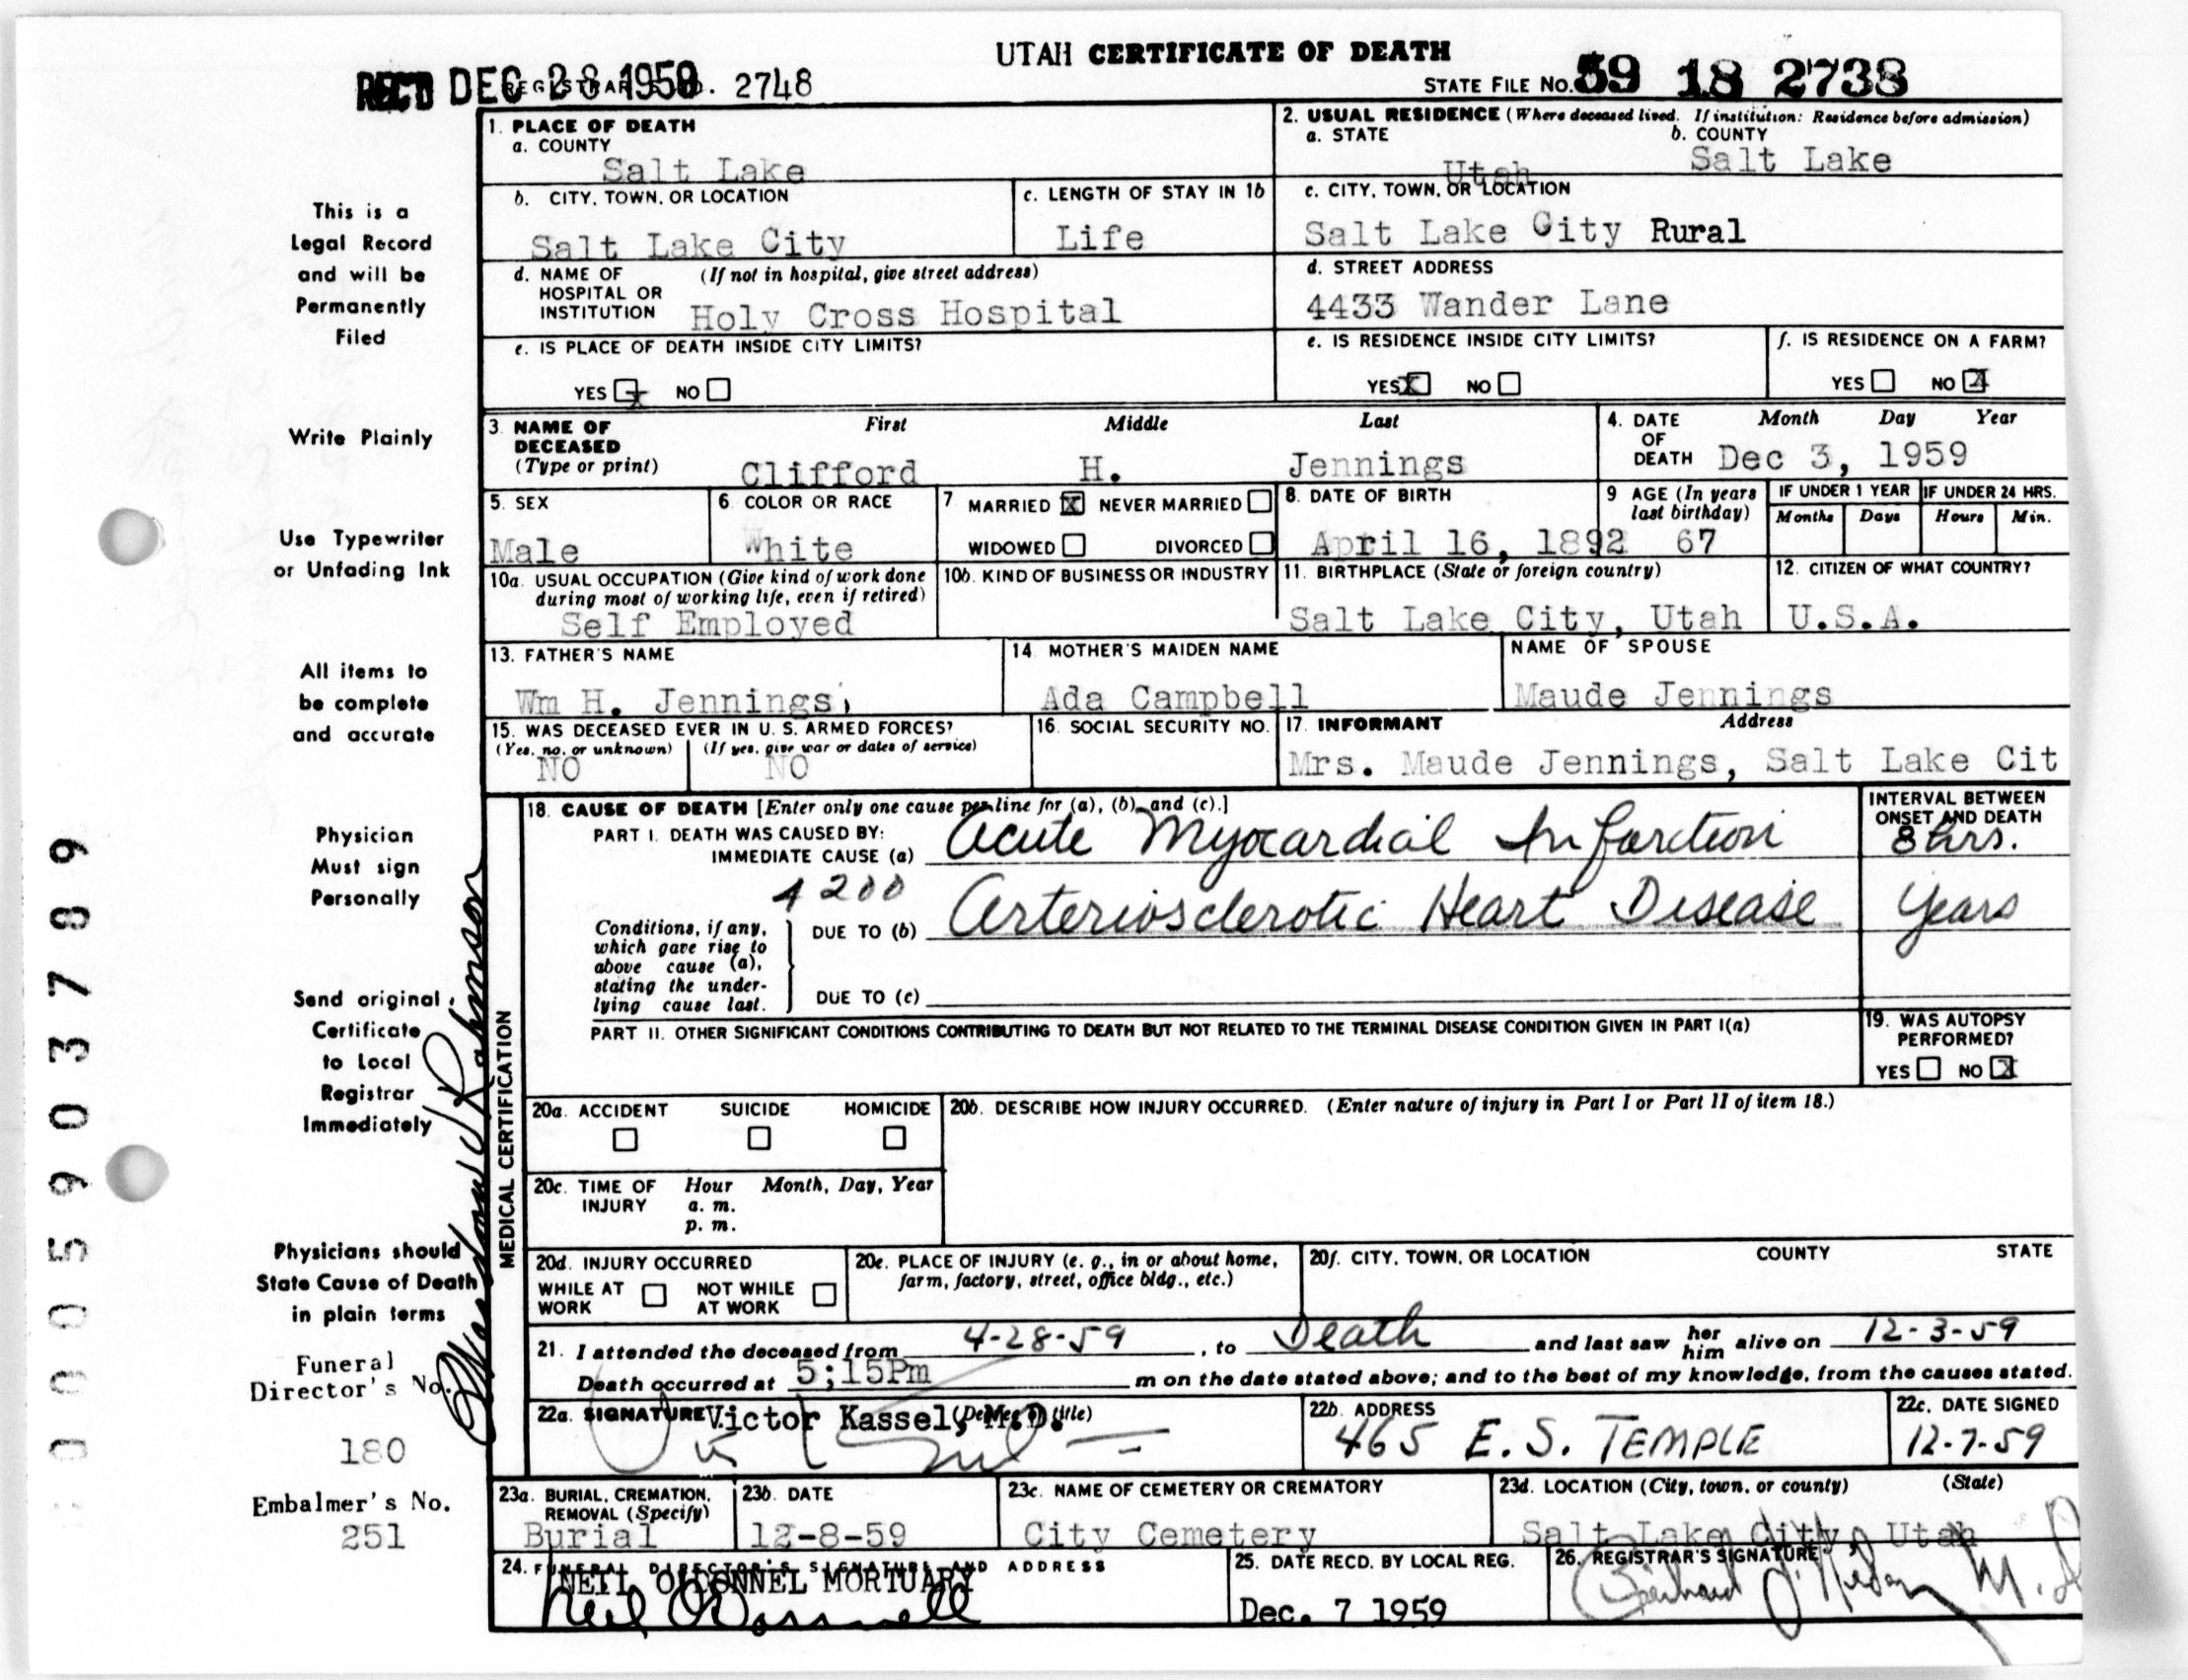 UTAH CERTIFICATE OF DEATH
REC'D DEC 28 1959 2748
STATE FILE NO. 59 18 2738
1. PLACE OF DEATH
a. COUNTY
Salt Lake
2. USUAL RESIDENCE (Where deceased lived. If institution: Residence before admission)
a. STATE b. COUNTY
Utah Salt Lake
b. CITY, TOWN, OR LOCATION
Salt Lake City
c. LENGTH OF STAY IN 1b
Life
c. CITY, TOWN, OR LOCATION
Salt Lake City Rural
d. NAME OF HOSPITAL OR INSTITUTION (If not in hospital, give street address)
Holy Cross Hospital
d. STREET ADDRESS
4433 Wander Lane
e. IS PLACE OF DEATH INSIDE CITY LIMITS?
YES X NO
e. IS RESIDENCE INSIDE CITY LIMITS?
YES X NO
f. IS RESIDENCE ON A FARM?
YES NO X
3. NAME OF DECEASED (Type or print)
First Middle Last
Clifford H. Jennings
4. DATE OF DEATH Month Day Year
Dec 3, 1959
5. SEX
Male
6. COLOR OR RACE
White
7 MARRIED X NEVER MARRIED
WIDOWED DIVORCED
8. DATE OF BIRTH
April 16, 1892
9 AGE (In years last birthday)
67
IF UNDER 1 YEAR IF UNDER 24 HRS.
Months Days Hours Min.
10a. USUAL OCCUPATION (Give kind of work done during most of working life, even if retired)
Self Employed
10b. KIND OF BUSINESS OR INDUSTRY
11. BIRTHPLACE (State or foreign country)
Salt Lake City, Utah
12. CITIZEN OF WHAT COUNTRY?
U.S.A.
13. FATHER'S NAME
Wm H. Jennings,
14. MOTHER'S MAIDEN NAME
Ada Campbell
NAME OF SPOUSE
Maude Jennings
15. WAS DECEASED EVER IN U. S. ARMED FORCES?
(Yes, no, or unknown) (If yes, give war or dates of service)
NO NO
16. SOCIAL SECURITY NO.
17. INFORMANT Address
Mrs. Maude Jennings, Salt Lake Cit
18. CAUSE OF DEATH [Enter only one cause per line for (a), (b), and (c).]
PART I. DEATH WAS CAUSED BY:
IMMEDIATE CAUSE (a) Acute Myocardial Infarction
4200
Conditions, if any, which gave rise to above cause (a), stating the underlying cause last.
DUE TO (b) Arteriosclerotic Heart Disease
DUE TO (c)
INTERVAL BETWEEN ONSET AND DEATH
8 hrs.
Years
PART II. OTHER SIGNIFICANT CONDITIONS CONTRIBUTING TO DEATH BUT NOT RELATED TO THE TERMINAL DISEASE CONDITION GIVEN IN PART I(a)
19. WAS AUTOPSY PERFORMED?
YES NO X
20a. ACCIDENT SUICIDE HOMICIDE
20b. DESCRIBE HOW INJURY OCCURRED. (Enter nature of injury in Part I or Part II of item 18.)
20c. TIME OF INJURY Hour Month, Day, Year
a. m.
p. m.
20d. INJURY OCCURRED
WHILE AT WORK NOT WHILE AT WORK
20e. PLACE OF INJURY (e. g., in or about home, farm, factory, street, office bldg., etc.)
20f. CITY, TOWN, OR LOCATION COUNTY STATE
21. I attended the deceased from 4-28-59, to Death and last saw her him alive on 12-3-59
Death occurred at 5;15Pm m on the date stated above; and to the best of my knowledge, from the causes stated.
22a. SIGNATURE Victor Kassel, M.D. (Degree or title)
22b. ADDRESS
465 E. S. TEMPLE
22c. DATE SIGNED
12-7-59
23a. BURIAL, CREMATION, REMOVAL (Specify)
Burial
23b. DATE
12-8-59
23c. NAME OF CEMETERY OR CREMATORY
City Cemetery
23d. LOCATION (City, town, or county) (State)
Salt Lake City, Utah
24. FUNERAL DIRECTOR'S SIGNATURE AND ADDRESS
NEIL O'DONNEL MORTUARY
Neil O'Donnell
25. DATE RECD. BY LOCAL REG.
Dec. 7 1959
26. REGISTRAR'S SIGNATURE
M.D.
This is a
Legal Record
and will be
Permanently
Filed
Write Plainly
Use Typewriter
or Unfading Ink
All items to
be complete
and accurate
Physician
Must sign
Personally
Send original
Certificate
to Local
Registrar
Immediately
Physicians should
State Cause of Death
in plain terms
Funeral
Director's No.
180
Embalmer's No.
251
MEDICAL CERTIFICATION
0005903789